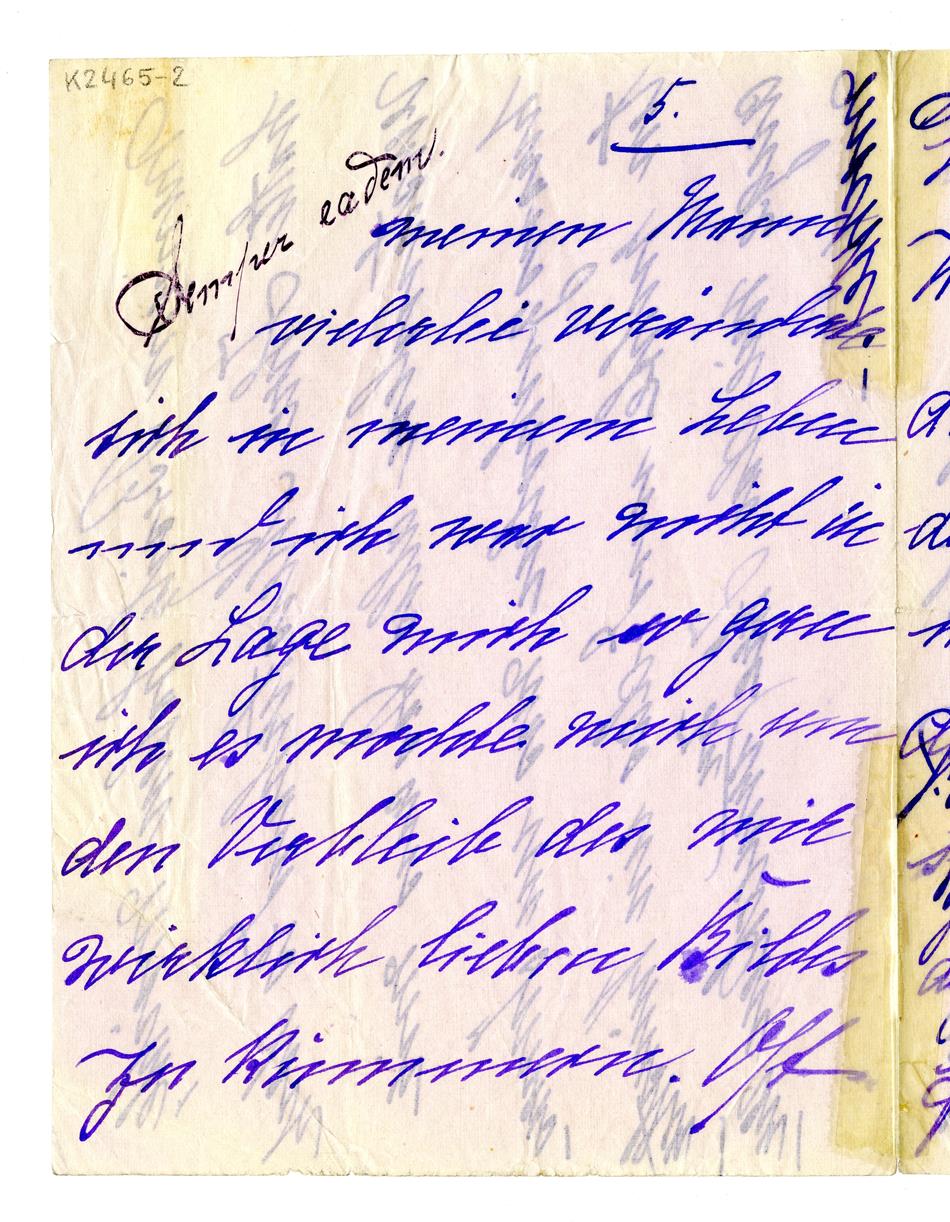 K2465-2
5.
Semper eadem.
meinen Mann
vielerlei veränderte
sich in meinem Leben
und ich war nicht in
der Lage mich so gern
ich es mochte mich um
den Verbleib des mir
wirklich lieben Bildes
zu kümmern. Oft